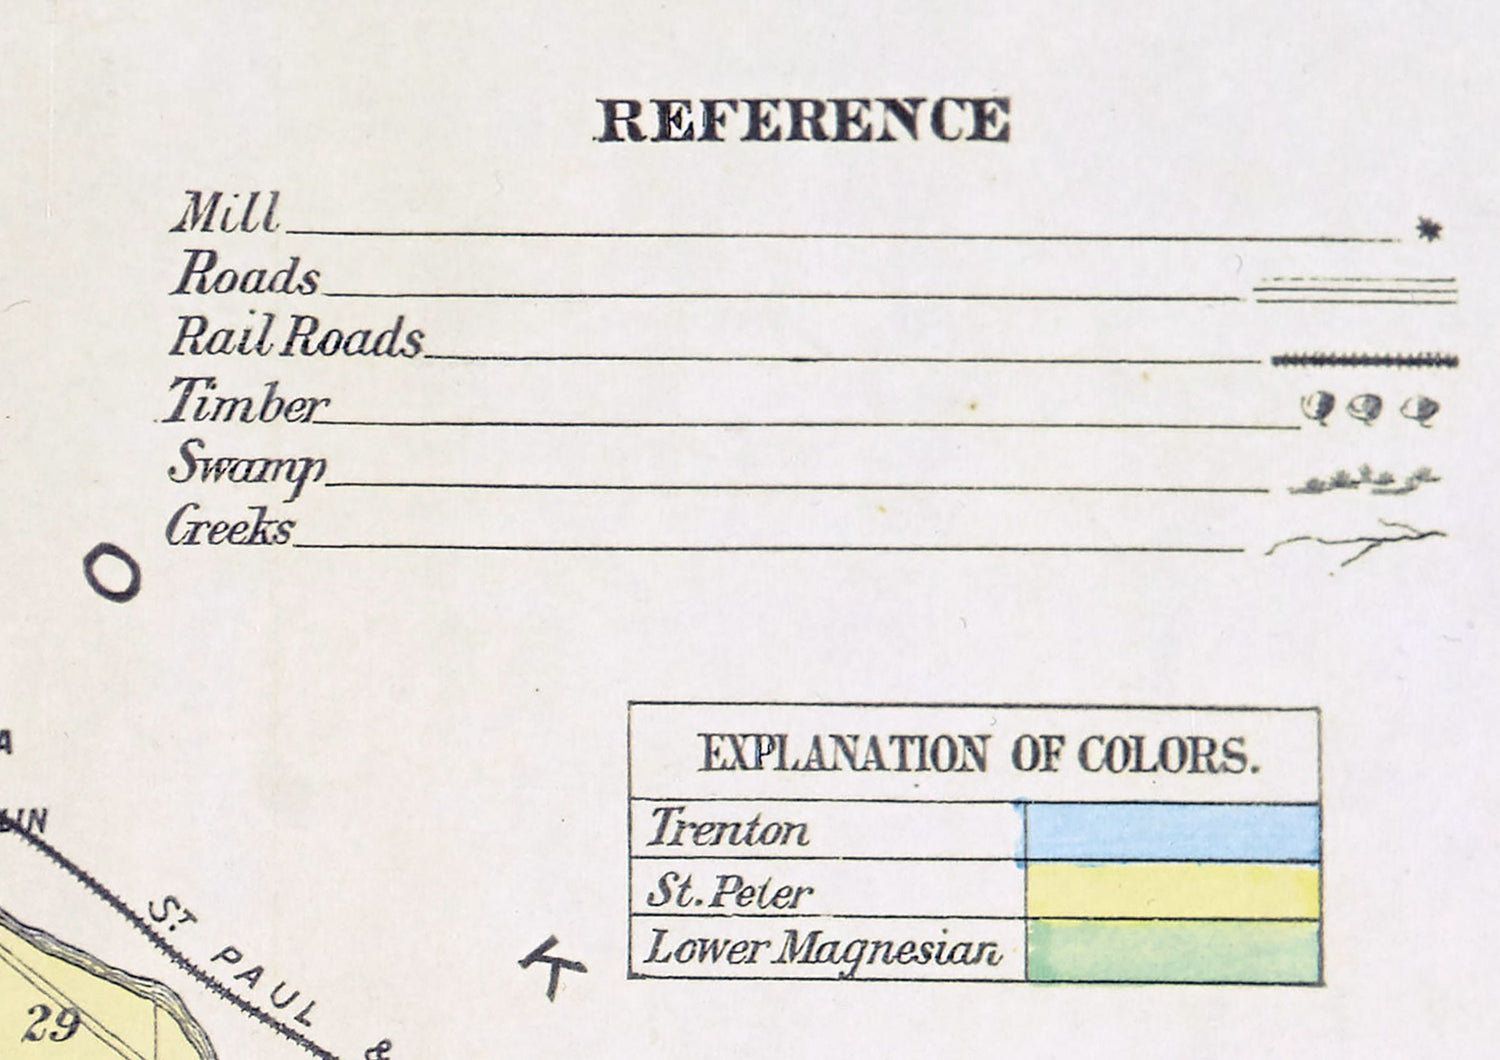 REFERENCE
Mill
Roads
Rail Roads
Timber
Swamp
Creeks
O
A
EXPLANATION OF COLORS.
Trenton
St. Peter
Lower Magnesian
ST. PAUL &
K
29